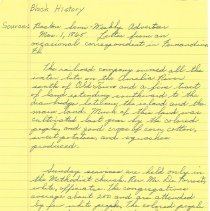 Black History
Sources: Boston Semi-Weekly Advertiser
Mar 1, 1865 Letter from an
occasional correspondent in Fernandina
Fla
The railroad company owned all the
water lots on the Amelia River
south of Alderburs and a five hund
of land extending south to the
drawbridge between the island and the
main land. Much of this land was
cultivated last year by the colored
people and good crops of corn, cotton,
sweet potatoes and squashes
produced.
Sunday services are held only in
the Methodist Church. Rev. Mr. De Forrest,
white, officiates. The congregations
average about 200 and are attended
by few white people. The colored people